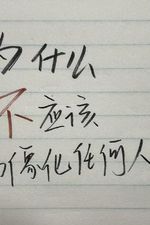 为什么
不应该
偶像化任何人